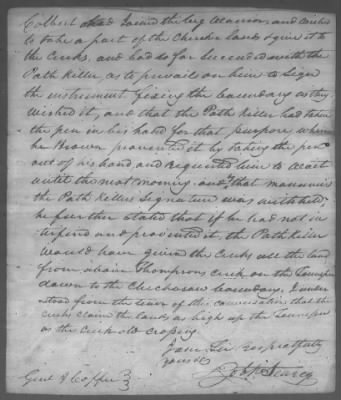 Colbert had Joined the big Warrior and wishes
to take a part of the Cherokee lands & give it to
the Creeks, and had so far Succeeded with the
Path Killer, as to prevail on him to Sign
the instrument fixing the boundary as they
wished it, and that the Path Killer had taken
the pen in his hand for that purpose, when
he Brown prevented it by taking the pen
out of his hand and Requested him to wait
until the next morning and by that maneuver
the Path Killers Signature was withheld,
he further stated that if he had not in
terfered and prevented it, the Path Killer
would have given the Creeks all the land
from Thompsons Creek on the Tennessee
down to the Chickasaw boundary. I under
stood from the tenor of this conversation that the
Creeks claim the lands as high up the Tennessee
as the Creek old crossing
I am Sir respectfully
yours &c
Searcy
Genl J Coffee